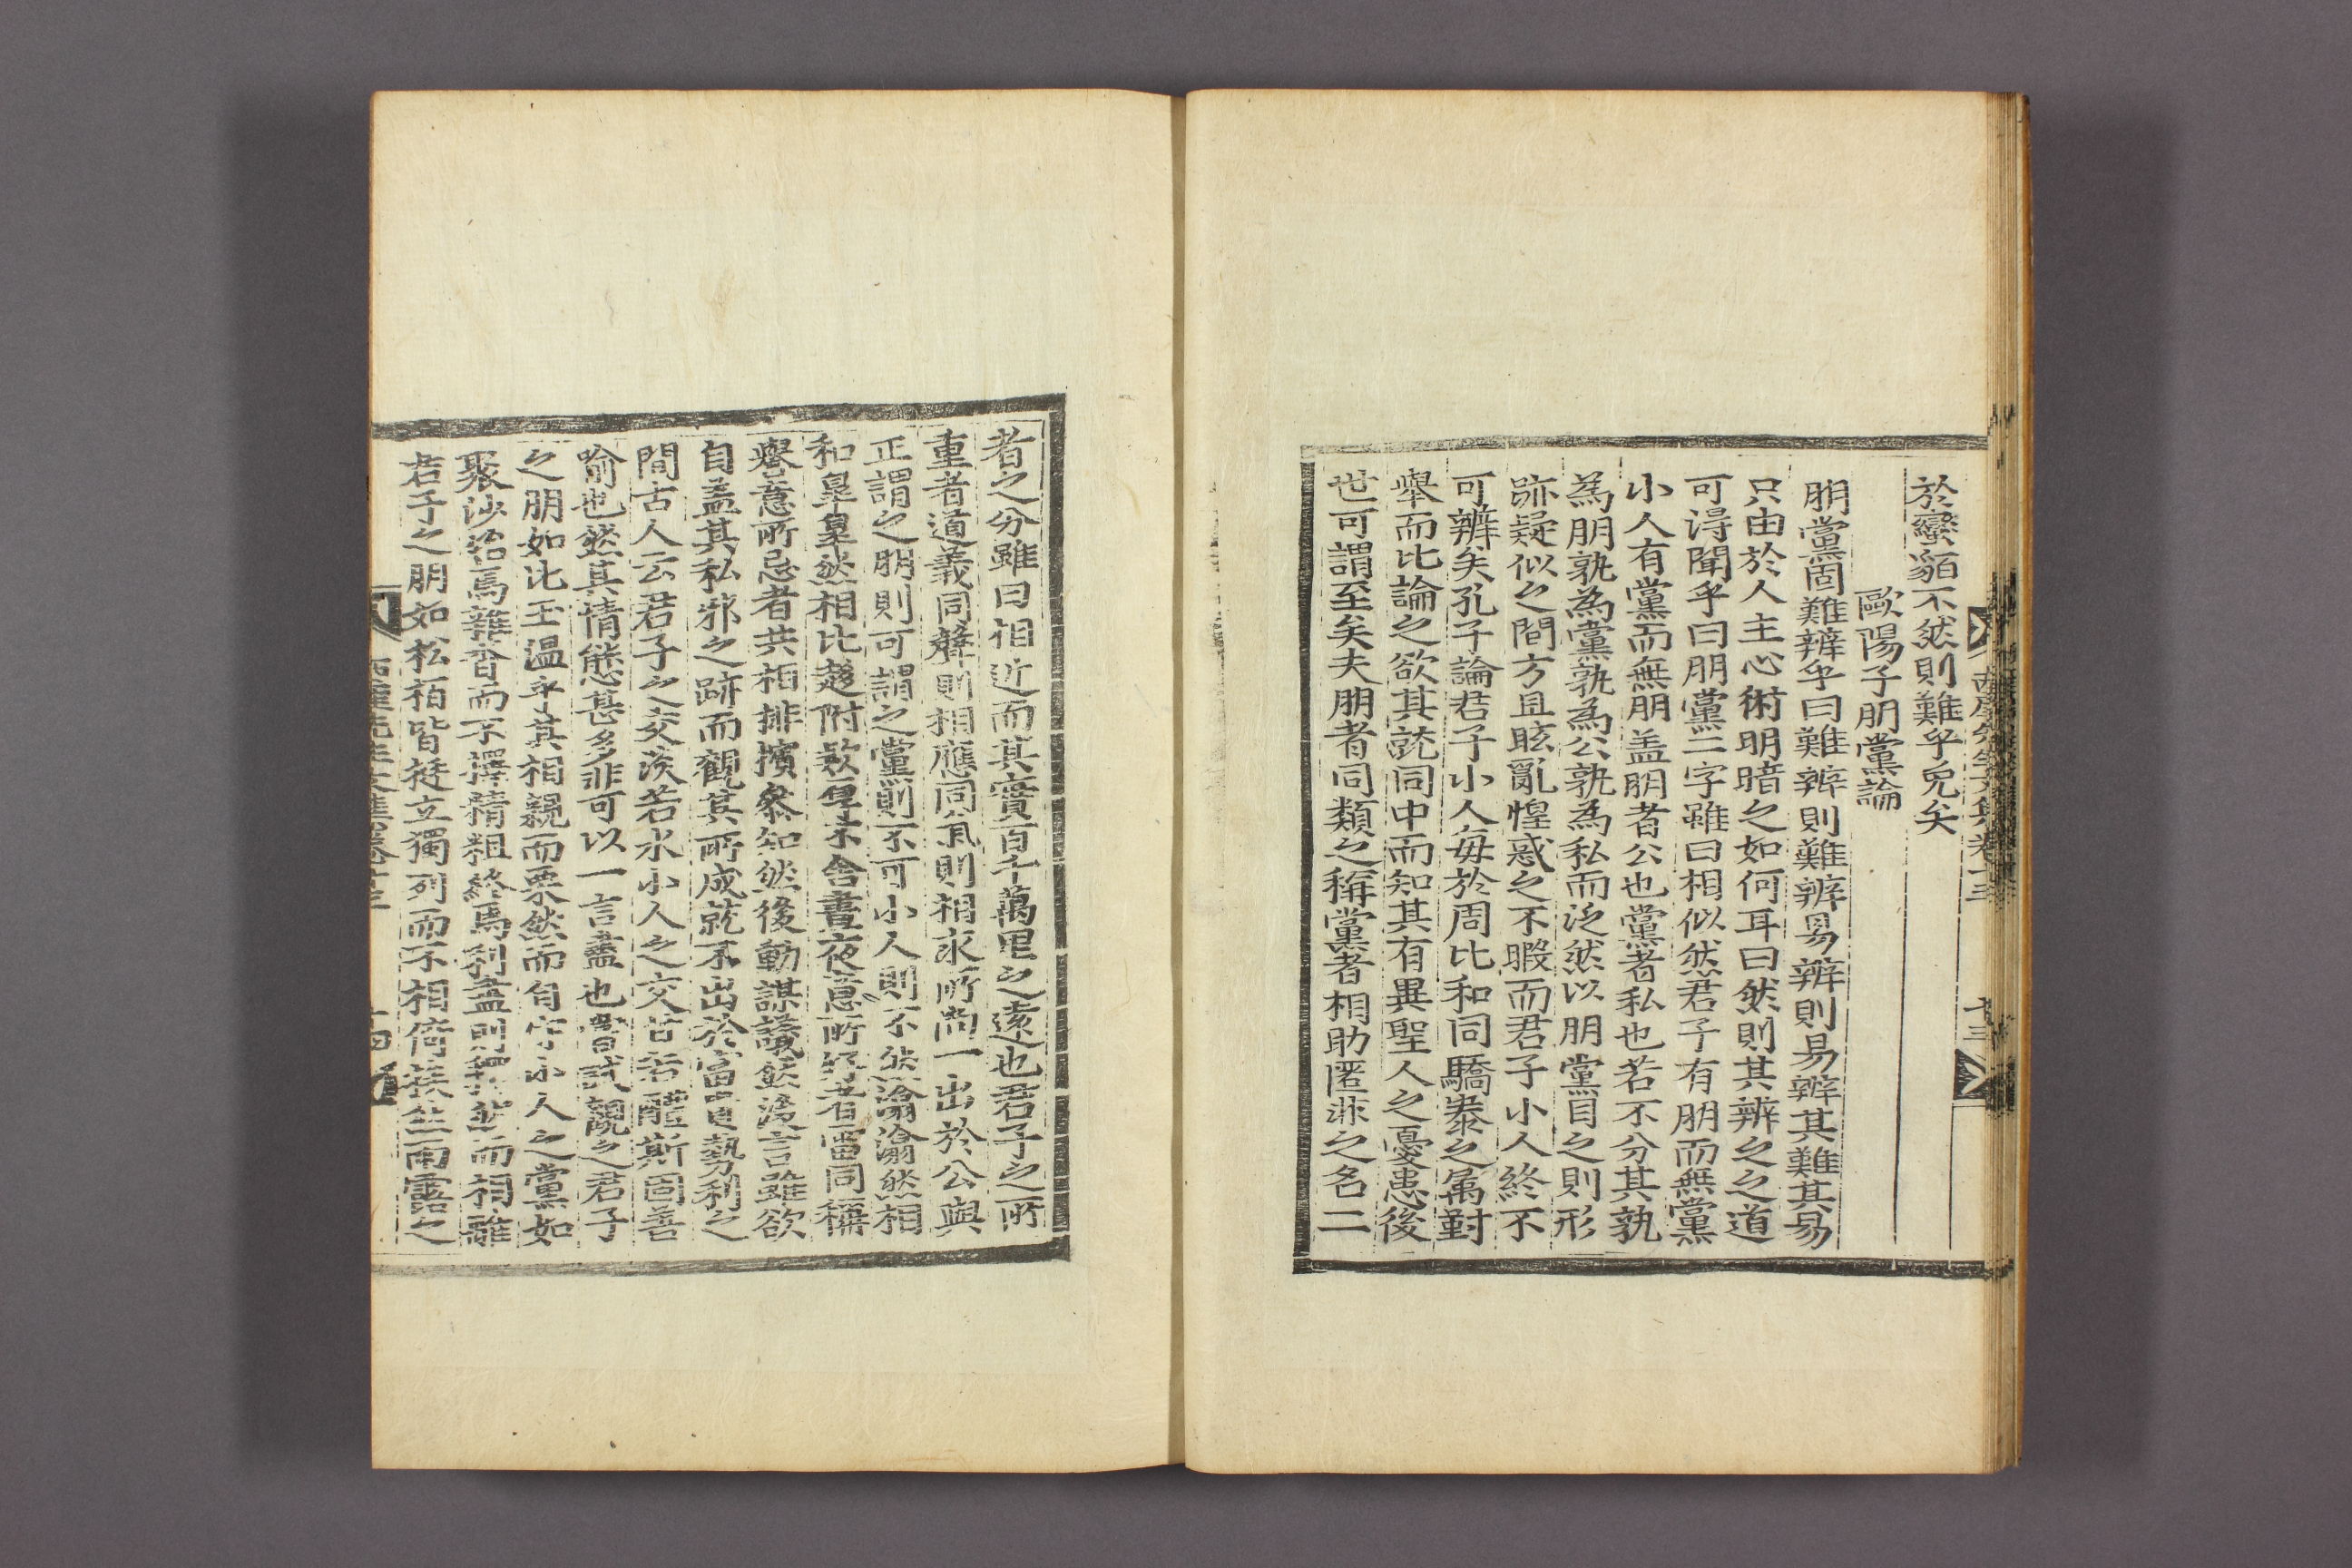 於蠻貊不然則難乎免矣
歐陽子朋黨論
朋黨固難辨乎曰難辨則難辨易辨則易辨其難其易
只由於人主心術明暗之如何耳曰然則其辨之之道
可得聞乎曰朋黨二字雖曰相似然君子有朋而無黨
小人有黨而無朋盖朋者公也黨者私也若不分其孰
爲朋孰為黨孰為公孰為私而泛然以朋黨目之則形
跡疑似之間方且眩亂惶惑之不暇而君子小人終不
可辨矣孔子論君子小人每於周比和同驕泰之屬對
擧而比論之欲其就同中而知其有異聖人之憂患後
世可謂至矣夫朋者同類之稱黨者相助匿非之名二
者之分雖曰相近而其實百千萬里之遠也君子之所
重者道義同聲則相應同氣則相求所尚一出於公與
正謂之朋則可謂之黨則不可小人則不然滃滃然相
和皐皐然相比趍附歎息不舍晝夜意所好者雷同稱
譽意所忌者共相排擯叅知然後動謀議然後言雖欲
自盖其私邪之跡而觀其所成就不出於富貴勢利之
間古人云君子之交淡若水小人之交甘若醴斯固善
喻也然其情態甚多非可以一言盡也嘗試觀之君子
之朋如比玉温乎其相親而栗然而自守小人之黨如
聚沙始焉雜沓而不擇精粗終焉利盡則釋然而相離
君子之朋如松栢皆挺立獨列而不相倚 雨露之
西厓先生文集卷十三 十三
西厓先生文集卷十三 十四